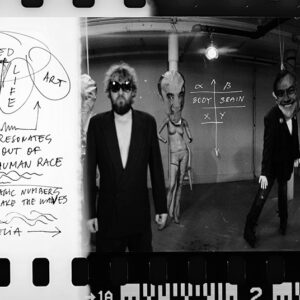 ED
LIFE
ART
RESONATES
OUT OF
HUMAN RACE
NUMBERS
ARE THE WAVES
α β
BODY BRAIN
X Y
1A
2